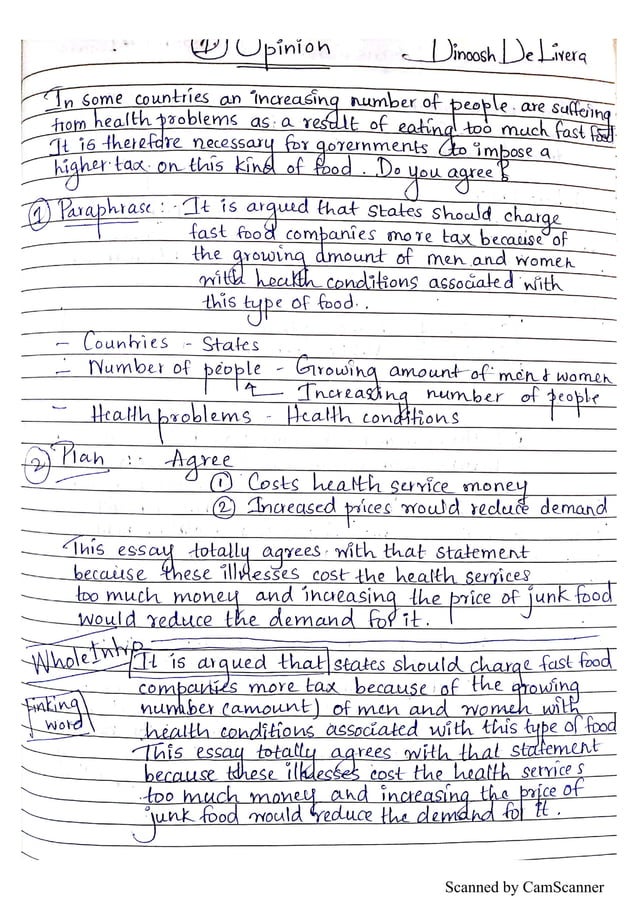 (1) Opinion - Dinoosh De Livera
In some countries an increasing number of people are suffering
from health problems as a result of eating too much fast food
It is therefore necessary for governments to impose a
higher tax on this kind of food. Do you agree?
(1) Paraphrase :- It is argued that states should charge
fast food companies more tax because of
the growing amount of men and women
with health conditions associated with
this type of food.
- Countries - States
- Number of people - Growing amount of men & women
Increasing number of people
- Health problems - Health conditions
(2) Plan :- Agree
(1) Costs health service money
(2) Increased prices would reduce demand
This essay totally agrees with that statement
because these illnesses cost the health services
too much money and increasing the price of junk food
would reduce the demand for it.
Whole Intro It is argued that states should charge fast food
companies more tax because of the growing
Linking number (amount) of men and women with
word health conditions associated with this type of food
This essay totally agrees with that statement
because these illnesses cost the health services
too much money and increasing the price of
junk food would reduce the demand for it.
Scanned by CamScanner